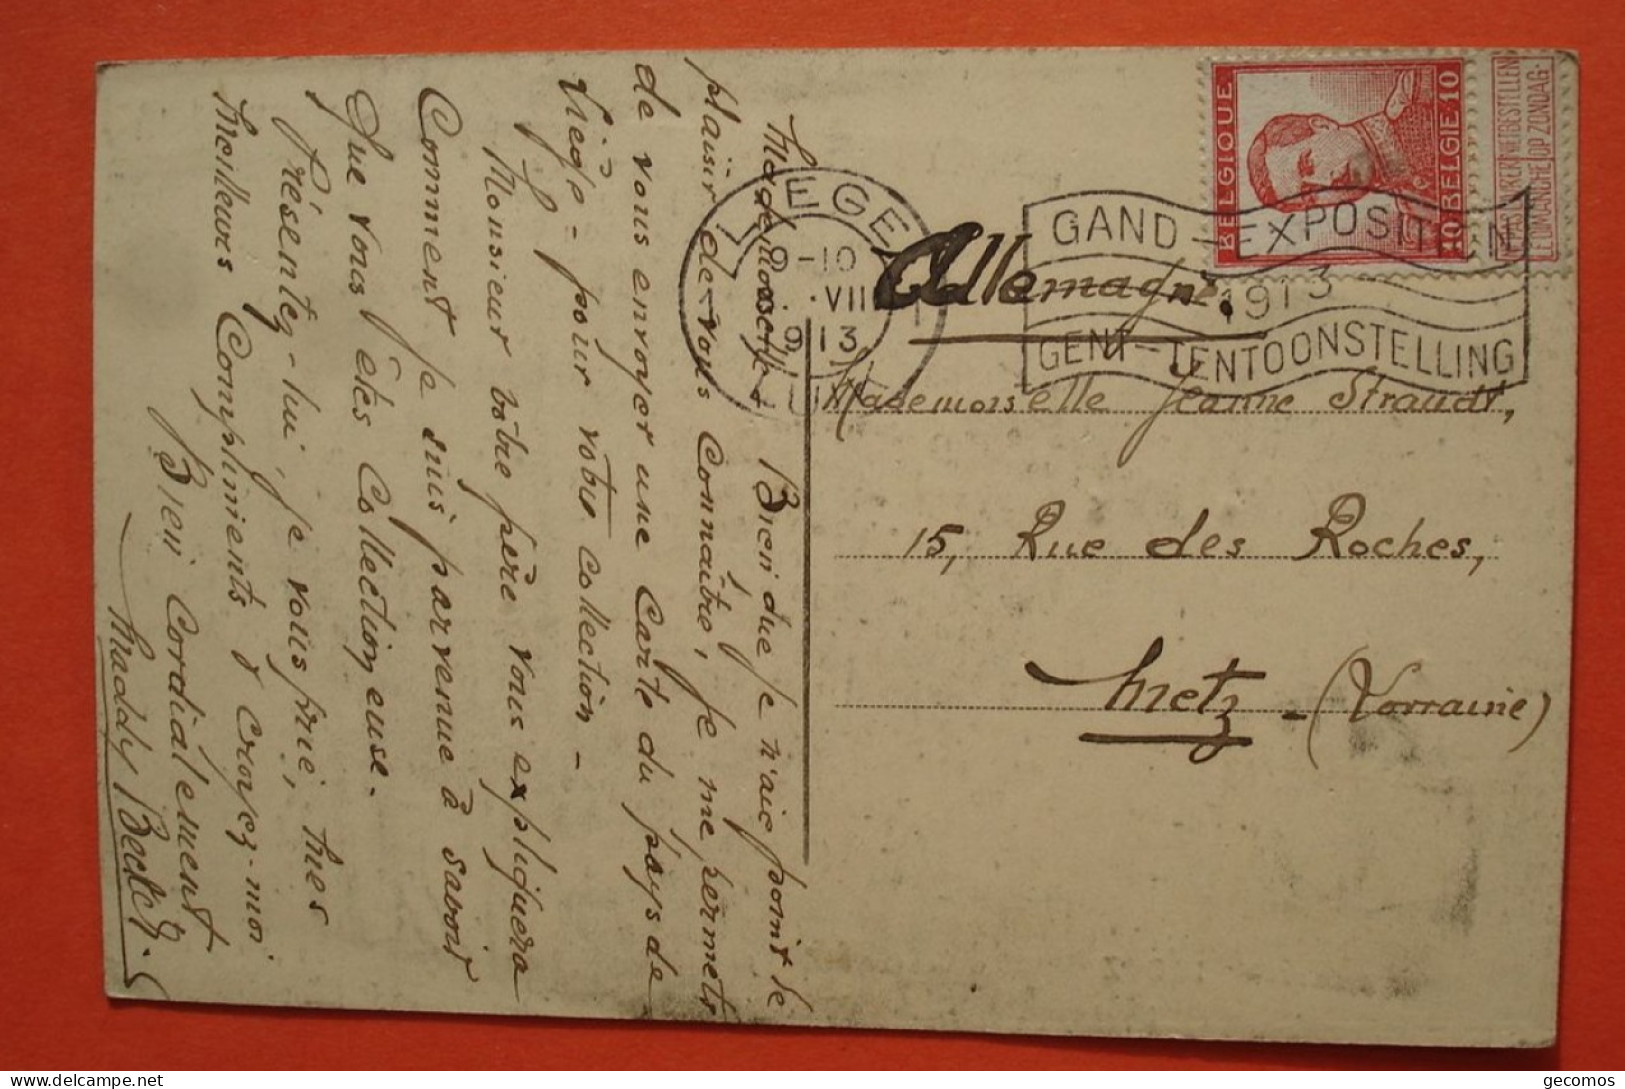 Mademoiselle,
Bien que je n'aie point le
plaisir de vous connaître, je me permets
de vous envoyer une Carte du pays de
Liège - pour votre collection -
Monsieur votre père vous expliquera
Comment je suis parvenue à savoir
Que vous êtes Collectionneuse.
Présentez-lui, je vous prie, mes
meilleurs Compliments & croyez-moi
Bien Cordialement
Maddy Becker.
LIEGE
9-10
VII
1913
GAND-EXPOSITION
1913
GENT-TENTOONSTELLING
BELGIQUE
10 BELGIE 10
NE PAS LIVRER
LE DIMANCHE
NIET BESTELLEN
OP ZONDAG
Allemagne.
Mademoiselle Jeanne Straudt,
15, Rue des Roches,
Metz - (Lorraine)
delcampe.net
gecomos